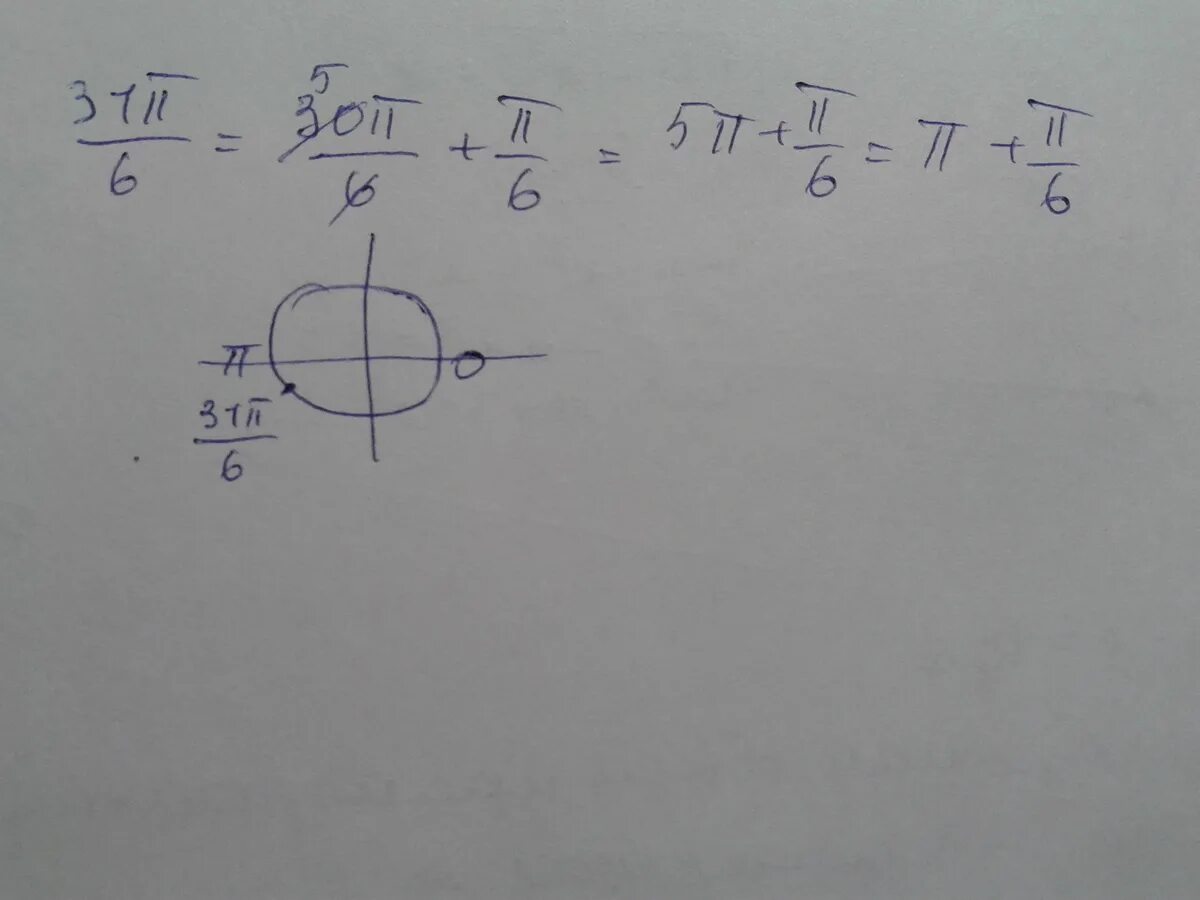 31π/6 = 30π/6 5 + π/6 = 5π + π/6 = π + π/6
π 0
31π/6